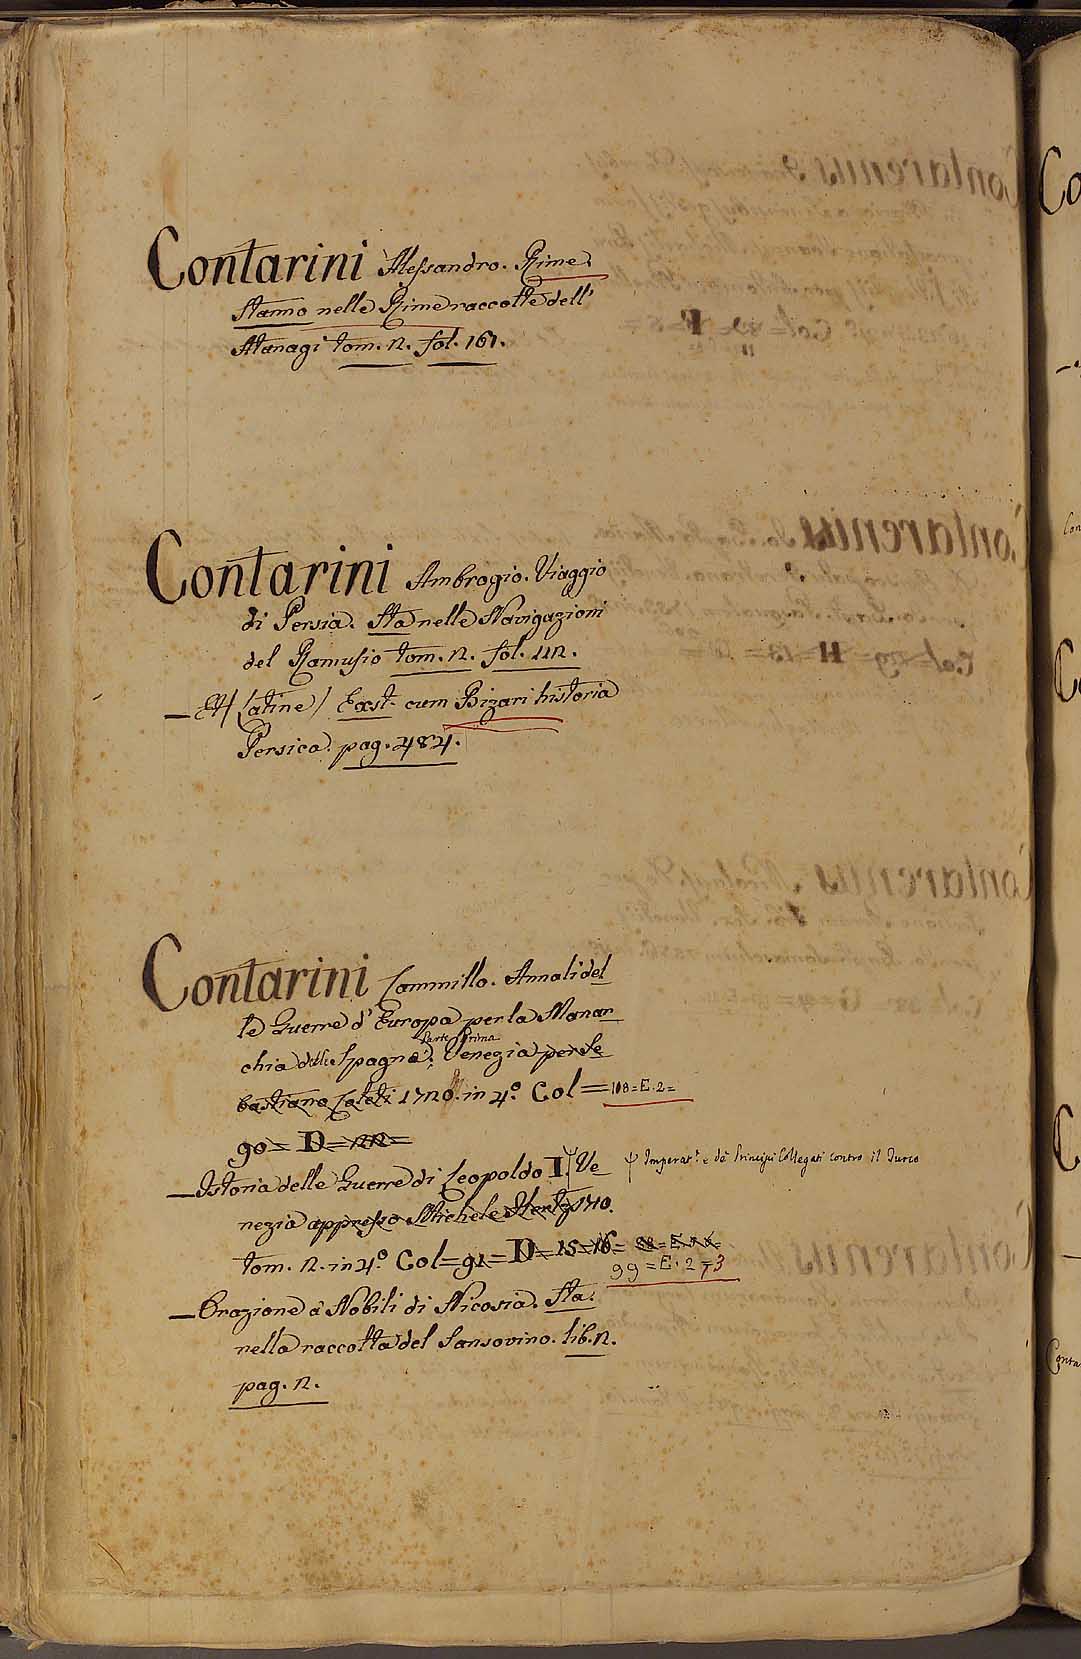 Contarini Alessandro. Rime.
Stanno nelle Rime raccolte dell'
Atanagi tom. 2. fol. 161.
Contarini Ambrogio. Viaggio
di Persia. Sta nelle Navigazioni
del Ramusio tom. 2. fol. 112.
— Et Latine / Exst. cum Bizari historia
Persica. pag. 484.
Contarini Cammillo. Annali del
le Guerre d'Europa per la Monar
Parte Prima
chia delle Spagne. Venezia per Se
bastiano Coleti 1720. in 4.º Col = 108 = E. 2 =
90 = D = 122 =
— Istoria delle Guerre di Leopoldo I. ψ Ve
ψ Imperat.e e de Principi Collegati contro il Turco
nezia appresso Michele Hertz 1710.
tom. 2. in 4.º Col = 91 = D = 15 = 16 =
99 = E. 2 = 73
— Orazione a Nobili di Nicosia. Sta
nella raccolta del Sansovino. lib. 2.
pag. 2.